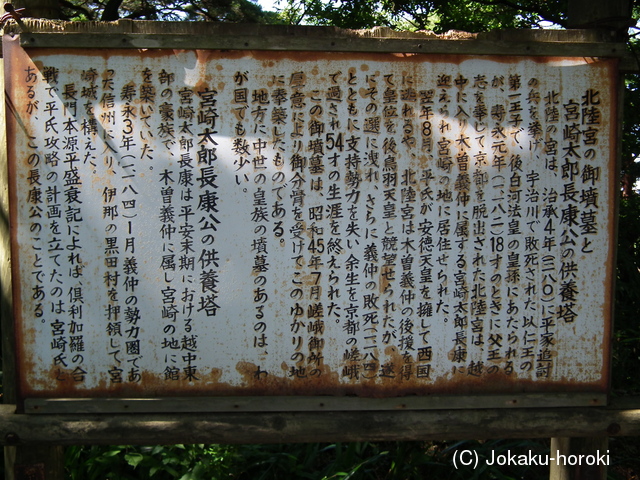 北陸宮の御墳墓と
宮崎太郎長康公の供養塔
北陸の宮は、治承4年(一一八〇)に平家追討
の兵を挙げ、宇治川で敗死された以仁王の
第一王子で、後白河法皇の皇孫にあたられる
が、寿永元年(一一八二)18才のときに父王の
志を奉じて京都を脱出された北陸宮は、越
中に入り木曽義仲に属する宮崎太郎長康に
迎えられ宮崎の地に居住せられた。
翌年8月、平氏が安徳天皇を擁して西国
に逃れるや、北陸宮は木曽義仲の後援を得
て皇位を後鳥羽天皇と競望せられたが、遂
にその選に洩れ、さらに義仲の敗死(一一八四)
とともに支持勢力を失い余生を京都の嵯峨
で過され54才の生涯を終えられた。
この御墳墓は、昭和45年7月嵯峨御所の
厚意により御分骨を受けてこのゆかりの地
に奉築したものである。
地方に中世の皇族の墳墓のあるのは、わ
が国でも数少い。
宮崎太郎長康公の供養塔
宮崎太郎長康は平安末期における越中東
部の豪族で、木曽義仲に属し宮崎の地に館
を築いていた。
寿永3年(一一八四)1月義仲の勢力圏であ
った信州に入り、伊那の黒田村を押領して、宮
崎城を構えた。
長門本源平盛衰記によれば、倶利加羅の合
戦で平氏攻略の計画を立てたのは、宮崎氏と
あるが、この長康公のことである。
(C) Jokaku-horoki